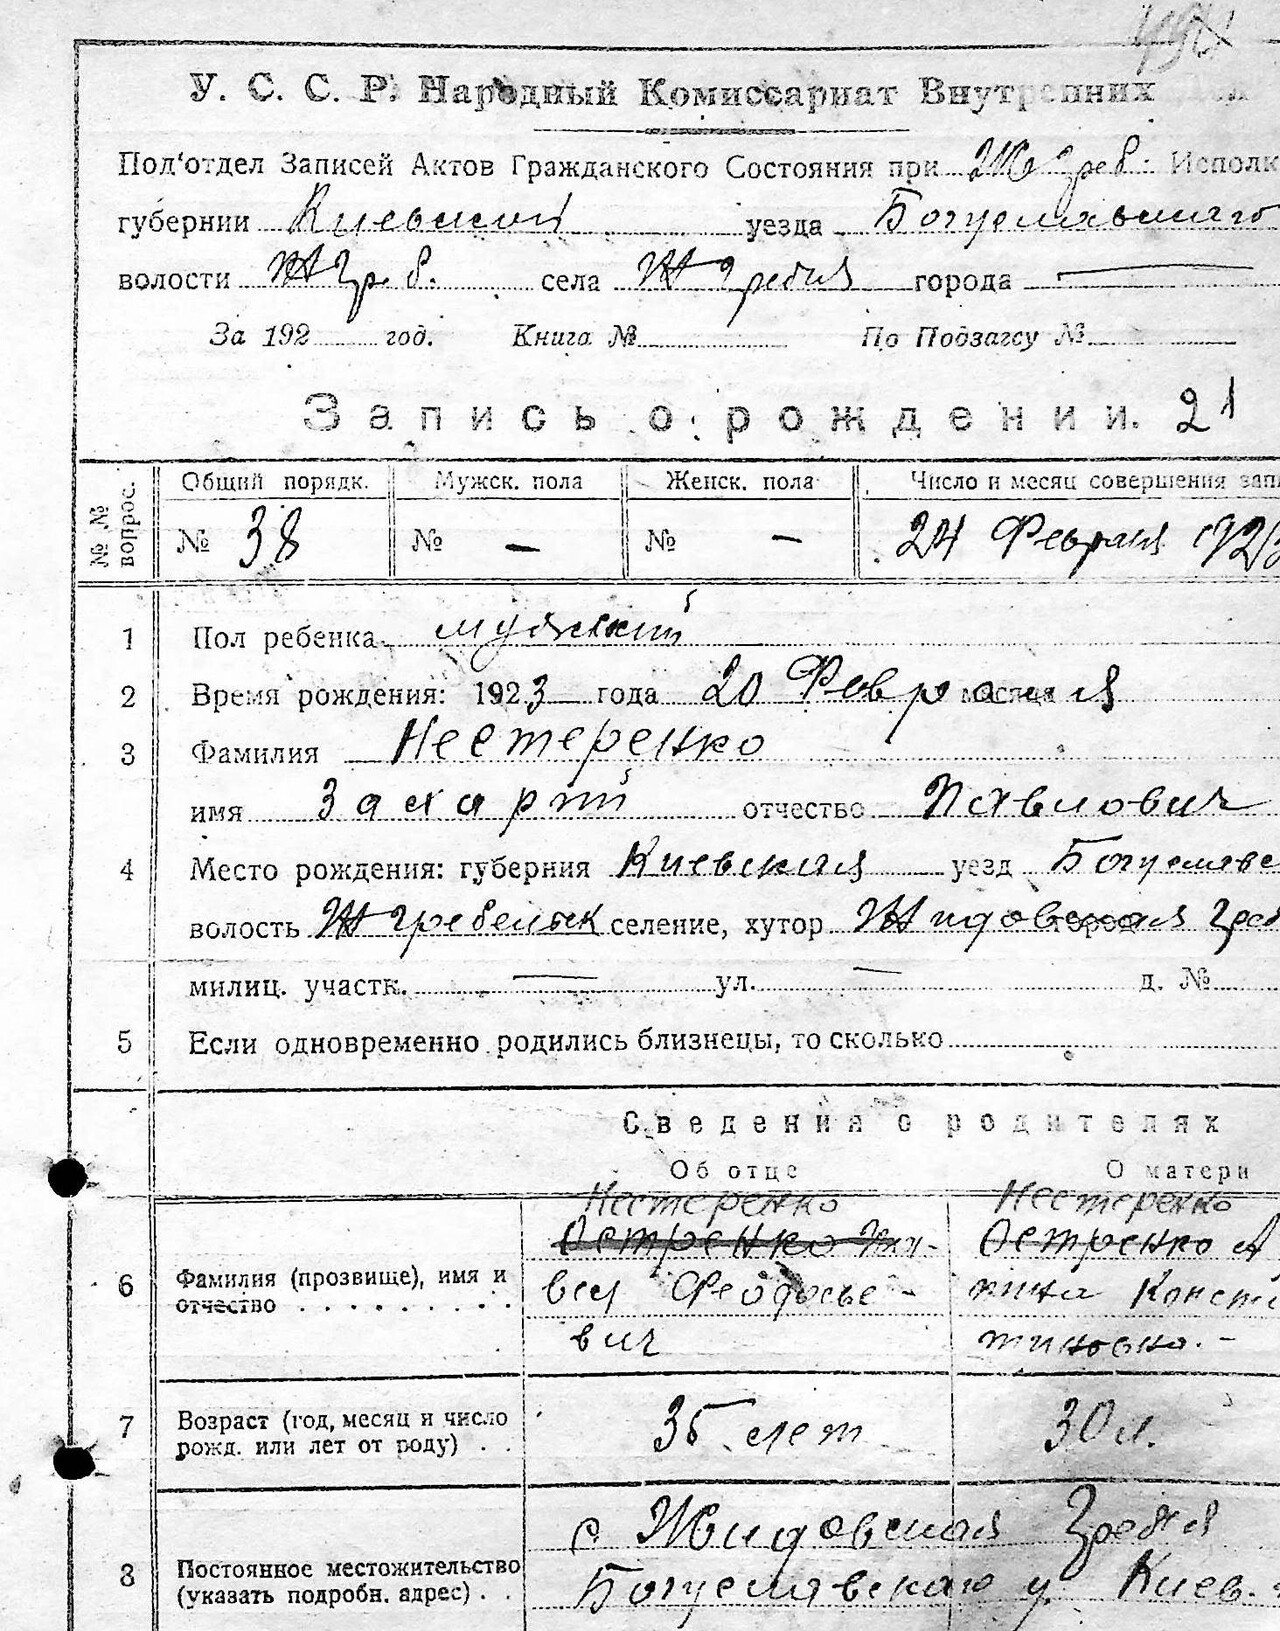 У. С. С. Р. Народный Комиссариат Внутренних
Под'отдел Записей Актов Гражданского Состояния при Ж Греб. Исполк
губернии Киевской уезда Богуславского
волости Ж Греб. села Ж Гребля города —
За 192 год. Книга № По Подзагсу №
Запись о рождении. 21
№№ вопрос. Общий порядк. Мужск. пола Женск. пола Число и месяц совершения запи
№ 38 № — № — 24 Февраля 1923
1 Пол ребенка мужский
2 Время рождения: 1923 года 20 Февраля месяца
3 Фамилия Нестеренко
имя Захарий отчество Павлович
4 Место рождения: губерния Киевская уезд Богуславс
волость Ж Гребельск селение, хутор Жидовская Греб
милиц. участк. — ул. — д. №
5 Если одновременно родились близнецы, то сколько
Сведения о родителях
Об отце О матери
Нестеренко Нестеренко
Остренко Па- Остренко А
6 Фамилия (прозвище), имя и вел Феодосье- Конста
отчество . . . . . . . . . . вич тиновна. -
7 Возраст (год, месяц и число 35 лет 30 л.
рожд. или лет от роду) . .
с Жидовская Гребля
8 Постоянное местожительство Богуславского у. Киев.
(указать подробн. адрес) . .